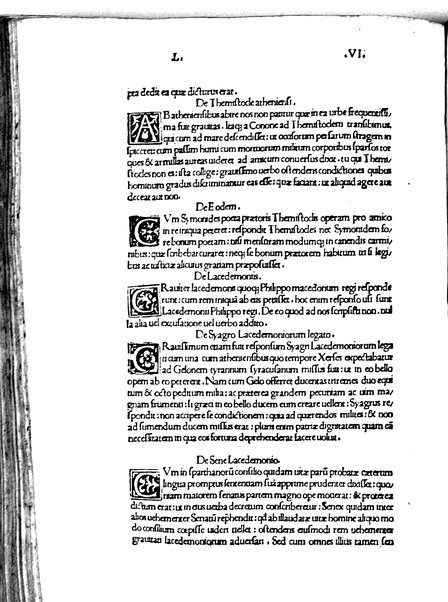 L. .VI.
pta dedit ea quæ dicturus erat.
De Themistocle atheniensi.
AB atheniensibus abire nos non patitur quæ in ea urbe frequentissi,
ma fuit grauitas. Itaq; a Conone ad Themistoclem transibimus.
qui cum ad mare descendisset: ut occasorum persarum stragem in
spiceret: cum passim humi cum mortuorum militum corporibus sparsos tor
ques & armillas aureas uideret ad amicum conuersus dixit. tu qui Themi,
stocles non es: ista collige: grauissimo uerbo ostendens condictiones quibus
hominum gradus discriminantur eas esse: quæ faciant: ut aliquid agere aut
deceat aut non.
De Eodem.
CVm Symonides poeta prætoris Themistoclis operam pro amico
in re iniqua peteret: respondit Themistocles nec Symonidem fo,
re bonum poetam: nisi mensuram modumq; in canendis carmi,
nibus: quæ scribebat curaret: neq; se bonum prætorem habitum nisi legi,
bus ac iusticiæ alicuius gratiam præposuisset.
De Lacedemoniis.
GRauiter lacedemonii quoq; Philippo macedonum regi responde
runt: cum rem iniquā ab eis petisset. hoc enim responso usi sunt
Lacedemonii Philippo regi. De eo quod ad nos scripsisti non. nul
la alia uel excusatione uel uerbo addito.
De Syagro Lacedemoniorum legato.
GRauissimum etiam fuit responsum Syagri Lacedemoniorum lega
ti cum una cum atheniensibus quo tempore Xerses expectabatur
ad Gelonem tyrannum syracusanum missus fuit: ut in eo bello
opem ab eo peterent. Nam cum Gelo offerret ducentas triremes duo equi
tum & octo peditum milia: ac præterea grandem pecuniam ac uim ma,
gnam frumenti: si græci in eo bello ducem eum creare uellent: Syagrus re,
spondit: non accipere se condictionem: quia ad quærendos milites: & non
ad sumendum ducem missus erat: pluris enim patriæ dignitatem quam eā
necessitatem in qua eos fortuna deprehenderat facere uoluit.
De Sene Lacedemonio.
CVm in sparthanorū consilio quidam uitæ parū probatæ cæterum
lingua promptus sententiam suā apprime prudenter dixisset: quo,
niam maiorem senatus partem magno ope mouerat: & præterea
dictum erat: ut in eius uerba decretum conscriberetur: Senex quidam inter
alios uehementer Senatū rephendit: qd ab illaudatæ uitæ homine aliquo mo
do consilium cœpisse uideri uellet: ostendens eiusmodi rem uehementer
grauitati lacedemoniorum aduersari. Sed cum omnes illius tamen sen